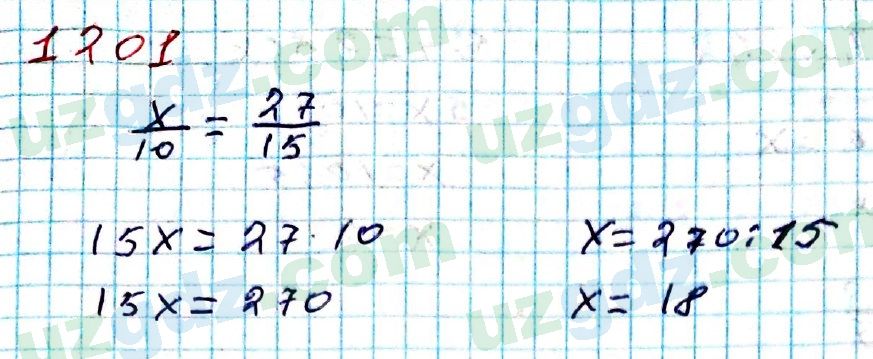 1201
x/10 = 27/15
15x = 27 · 10
15x = 270
x = 270 : 15
x = 18
uzgdz.com
uzgdz.com
uzgdz.com
uzgdz.com